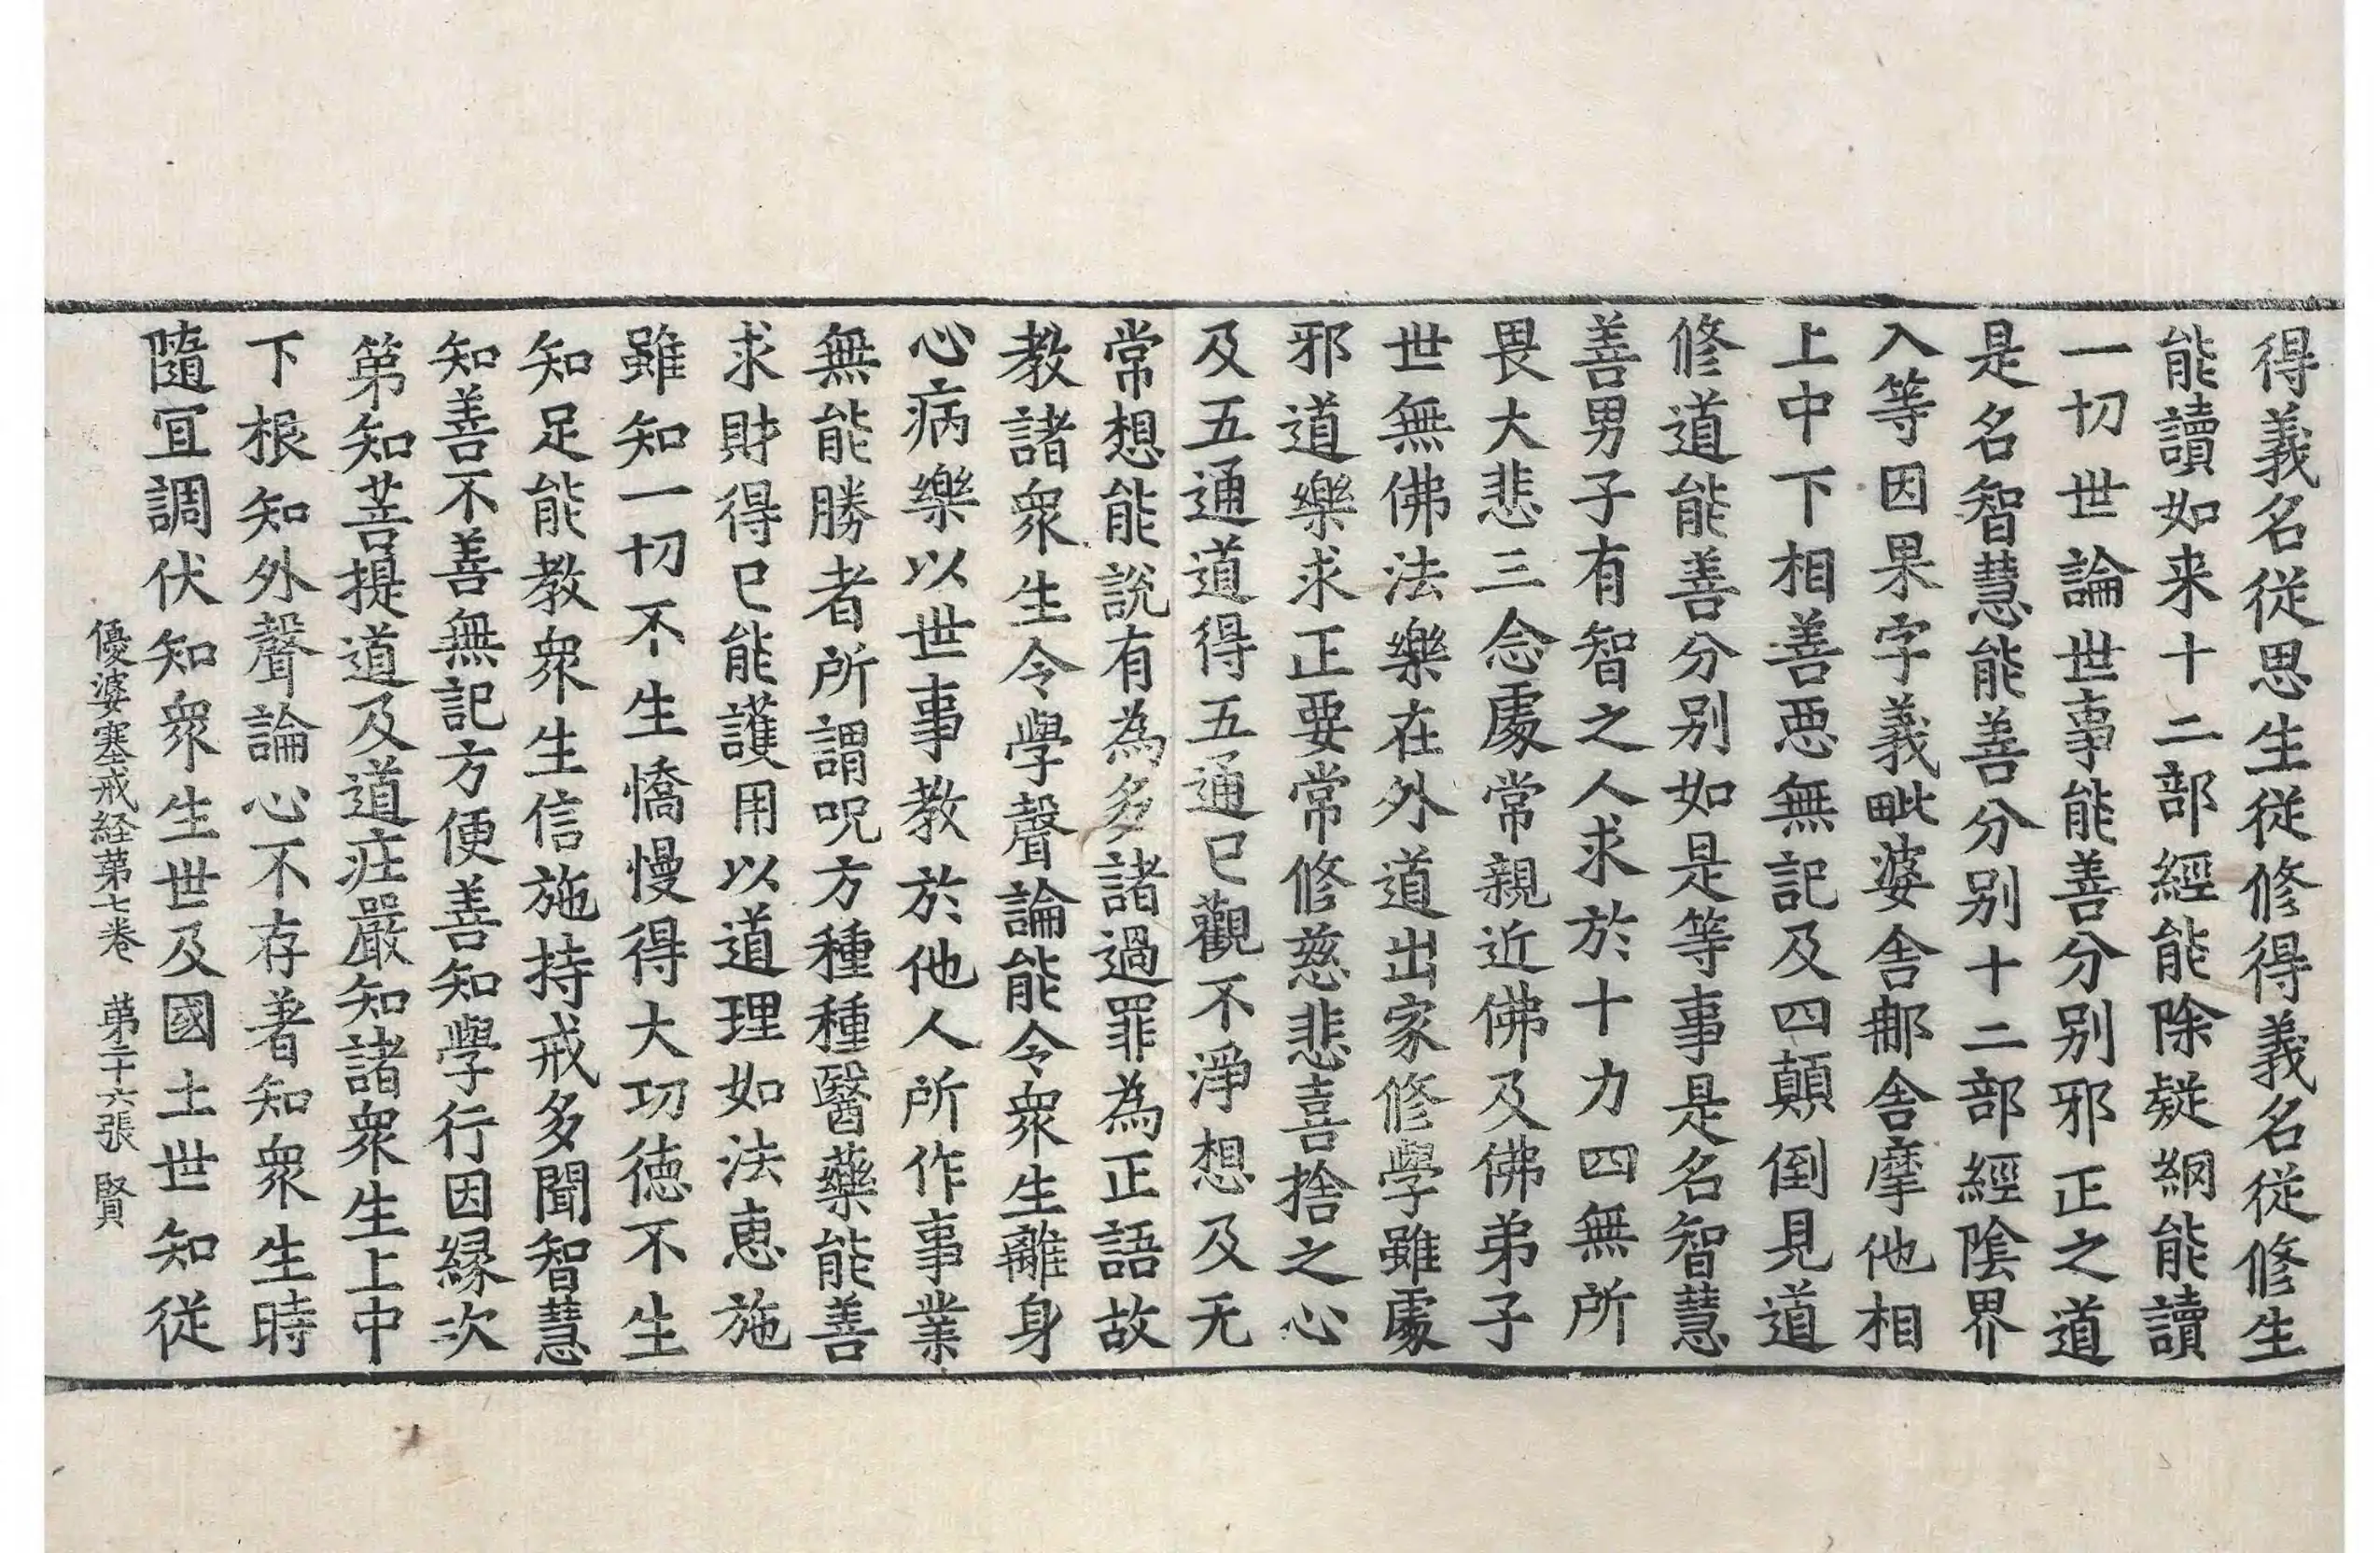 得義名従思生従修得義名従修生
能讀如来十二部經能除疑網能讀
一切世論世事能善分別邪正之道
是名智慧能善分別十二部經陰界
入等因果字義毗婆舎那舎摩他相
上中下相善惡無記及四顛倒見道
修道能善分別如是等事是名智慧
善男子有智之人求於十力四無所
畏大悲三念處常親近佛及佛弟子
世無佛法樂在外道出家修學雖處
邪道樂求正要常修慈悲喜捨之心
及五通道得五通已觀不淨想及无
常想能說有為多諸過罪為正語故
教諸衆生令學聲論能令衆生離身
心病樂以世事教於他人所作事業
無能勝者所謂呪方種種醫藥能善
求財得已能護用以道理如法恵施
雖知一切不生憍慢得大功德不生
知足能教衆生信施持戒多聞智慧
知善不善無記方便善知學行因縁次
第知菩提道及道莊嚴知諸衆生上中
下根知外聲論心不存著知衆生時
隨冝調伏知衆生世及國土世知従
優婆塞戒経第七卷　第二十六張　賢